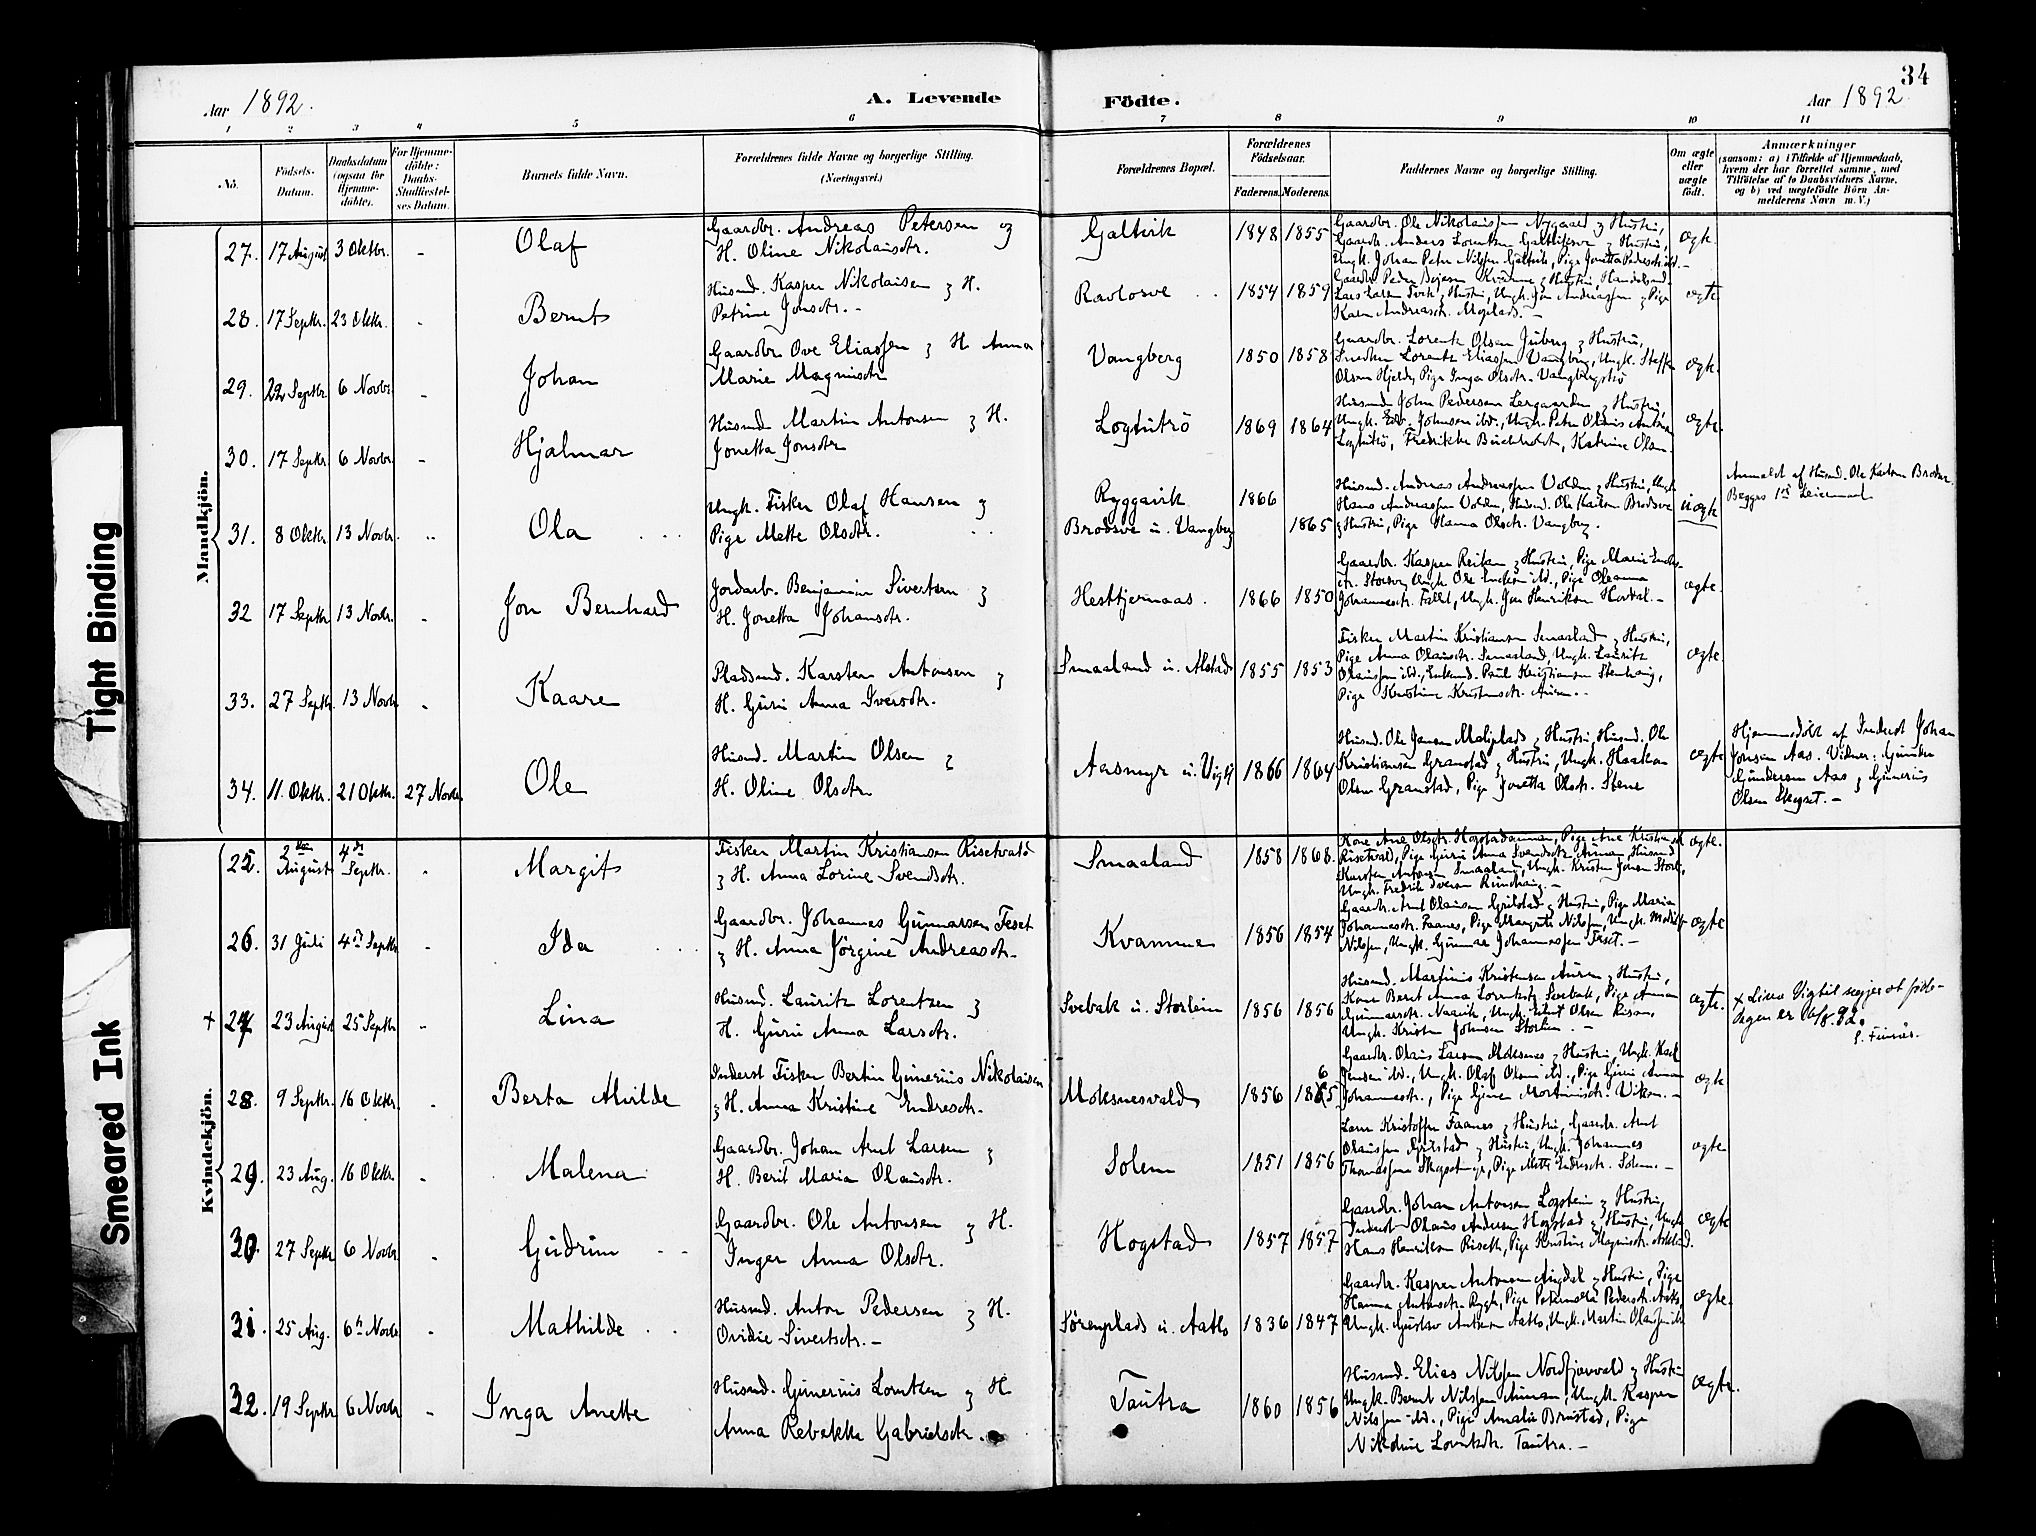 34
Aar 1892.
A. Levende
Födte.
Aar 1892
1 2 3 4 5 6 7 8 9 10 11
No.
Födsels-
Datum.
Daabsdatum
(ogsaa for
Hjemme-
döbte).
For Hjemme-
döbte:
Daabs-
Stadfæstel-
ses Datum.
Barnets fulde Navn.
Forældrenes fulde Navne og borgerlige Stilling.
(Næringsvei.)
Forældrenes Bopæl.
Forældrenes
Födselsaar.
Faderens. Moderens.
Faddernes Navne og borgerlige Stilling.
Om ægte
eller
uægte
födt.
Anmærkninger
(saasom: a) i Tilfælde af Hjemmedaab,
hvem der har forrettet samme, med
Tilföielse af to Daabsvidners Navne,
og b) ved uægtefödte Börn An-
melderens Navn m. V.)
Mandkjön.
27. 17 August 3 Oktbr. - Olaf
Gaardbr. Andreas Petersen og
H. Oline Nikolaisdtr.
Galtvik 1848 1855
Gaardbr. Ole Nikolaissen Nygaard & Hustru,
Gaardbr. Anders Lorentsen & Hustru,
Ungk. Johan Peter Nilssen Galtvik, Pige Jonetta
ægte.
28. 17 Septbr. 23 Oktbr. - Bernt
Husmd. Kasper Nikolaisen & H.
Petrine Jonsdtr. -
Ravlosve 1854 1859
Gaardbr. Peder Kvamme & Hustru, Handelsmd.
Lars Larsen & Hustru, Ungk. Jon Andreassen & Pige
Karen Andreasdtr. Moplads. -
ægte.
29. 22 Septbr. 6 Novbr. - Johan
Gaardbr. Ove Eliassen & H. Anna
Marie Magnusdtr.
Vangberg 1850 1858
Gaardbr. Lorents Olsen Juberg & Hustru,
Lorents Eliassen Vangberg, Ungk. Steffen
Olsen Hjelde, Pige Inga Olsdtr. Vangbergströ
ægte.
30. 17 Septbr. 6 Novbr. - Hjalmar
Husmd. Martin Antonsen & H.
Jonetta Jonsdtr.
Logtutrö 1869 1864
Husmd. John Pedersen Lergaarden & Hustru,
Ungk. Edv. Johnsen ibd., Ungk. Peter Antonsen
Logtutrö, Fredrikke Buchholdt, Katrine Olsen.
ægte.
31. 8 Oktbr. 13 Novbr. - Ola
Ungk. Fisker Olaf Hansen &
Pige Mette Olsdtr.
Ryggavik 1866
Brodsve u. Vangberg 1865
Husmd. Andreas Andreassen Volden & Hustru, Ungk.
Hans Andreassen Volden, Husmd. Ole Karlsen Brodsve
& Hustru, Pige Hanna Olsdtr. Vangberg.
uægte
Anmeldt af Husmd. Ole Karlsen Brodsve.
Begges 1ste Leiermaal.
32 17 Septbr. 13 Novbr. - Jon Bernhard
Jordarb. Benjamin Sivertsen &
H. Jonetta Johansdtr.
Hestkjernaas. 1866 1850
Gaardbr. Kasper Reitan & Hustru, Pige Marie
Ungk. Ole ibd., Pige Oleanna
Johannesdtr. Ungk. Jon Henriksen
ægte.
33. 27 Septbr. 13 Novbr. - Kaare
Pladsmd. Karsten Antonsen &
H. Guru Anna Iversdtr.
Smaaland u. Alstad 1855 1853
Fisker Martin Kristiansen Smaaland & Hustru,
Pige Anna Olausdtr. Smaaland, Ungk. Lauritz
Olaussen ibd., Enkemd. Paul Kristiansen Stenhaug,
Pige Kristine Kristensdtr. Auren. -
ægte.
34. 11. Oktbr. 21 Oktbr. 27 Novbr. Ole
Husmd. Martin Olsen &
H. Oline Olsdtr.
Aasmyr u. Vigtil 1866 1864
Husmd. Ole Jensen & Hustru, Husmd. Ole
Kristiansen Granstad & Hustru, Ungk. Haakon
Olsen Granstad, Pige Jonetta Olsdtr. Stene
ægte
Hjemmedöbt af Inderst Johan
Jonsen Aas. Vidner: Gunder
Gundersen Aas & Gunerius
Olsen -
Kvindekjön.
25. 2den August 4de Septbr. - Margit
Fisker Martin Kristiansen Risetvald
& H. Anna Lorine Svendsdtr.
Smaaland 1858 1868.
Kone Ane Olsdtr. Pige Ane
Risetvald, Pige Guru Anna Svendsdtr. Auran, Husmd.
Karsten Antonsen Smaaland, Ungk. Kristen Jensen
Ungk. Fredrik Iversen Rundhaug. -
ægte.
26. 31 Juli 4de Septbr. - Ida
Gaardbr. Johannes Gunnarsen Feset
& H. Anna Jörgine Andreasdtr.
Kvamme 1856 1854
Gaardbr. Arnt Olausen Grilstad & Hustru, Pige Maria
Johannesdtr. Faanes, Pige Margrete Nilssen, Ungk.
Nilssen, Ungk. Gunnar Johannessen Feset. -
ægte
+ 27. 23 August 25 Septbr. - Lina
Husmd. Lauritz Lorentzen &
H. Guru Anna Larsdtr.
Svebak u. Storlein 1856 1856
Husmd. Martinus Kristensen Auren & Hustru,
Kone Beret Anna Svebak, Pige Anna
Gunnarsdtr. Naavik, Ungk. Olsen
Ungk. Kristen Johnsen Storlein. -
ægte.
+ Lina Vigtil segjer at föde-
dagen er 16/8. 92.
28. 9 Septbr. 16 Oktbr. - Berta Alvilde
Inderst Fisker Bertin Gunerius Nikolaisen
& H. Anna Kristine Endresdtr.
Moksnesvald 1856 1865
Gaardbr. Olaus Larsen Moksnes & Hustru, Ungk. Karl
Jensen ibd., Ungk. Olaf Olsen ibd., Pige Guru Anna
Johannesdtr., Pige Gine Martinusdtr. Viken. -
ægte
29. 23 Aug. 16 Oktbr. - Malena
Gaardbr. Johan Arnt Larsen &
H. Berit Maria Olausdtr.
Solem 1851 1856
Kristoffer Faanes & Hustru, Gaardbr. Arnt
Olaussen Grilstad & Hustru, Ungk. Johannes
Thomassen Pige Mette Endresdtr. Solem. -
ægte
30. 27 Septbr. 6 Novbr. - Gudrun
Gaardbr. Ole Antonsen & H.
Inger Anna Olsdtr.
Hogstad 1857 1857
Gaardbr. Johan Antonsen Logstein & Hustru,
Inderst Olaus Andersen Hogstad & Hustru, Ungk.
Hans Henriksen Riseth, Pige Kristine Magnusdtr.
ægte
31. 25 Aug. 6te Novbr. - Mathilde
Husmd. Anton Pedersen & H.
Ovidie Sivertsdtr. -
Sörenplads u. Aatlo 1836 1847
Gaardbr. Kasper Antonsen & Hustru, Pige
Hanna Antonsdtr. Rygh, Pige Peternella Pedersdtr. Aatlo,
Ungk. Gustav Antonsen Aatlo, Ungk. Martin
ægte.
32. 19 Septbr. 6 Novbr. - Inga Anette
Husmd. Gunerius Lorntsen & H.
Anna Rebekka Gabrielsdtr.
Tautra 1860 1856
Husmd. Elias Nilssen Nordfjærvald & Hustru
Ungk. Bernt Nilssen Auran, Ungk. Kasper
Nilssen ibd., Pige Amalie Brustad, Pige
Nikoline Lorntsdtr. Tautra. -
ægte.
Tight Binding
Smeared Ink